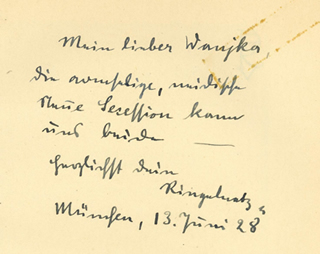 Mein lieber Wanjka,
die armselige, neidische
Neue Sezession kann
uns beide —
herzlichst dein
Ringelnatz
München, 13. Juni 28